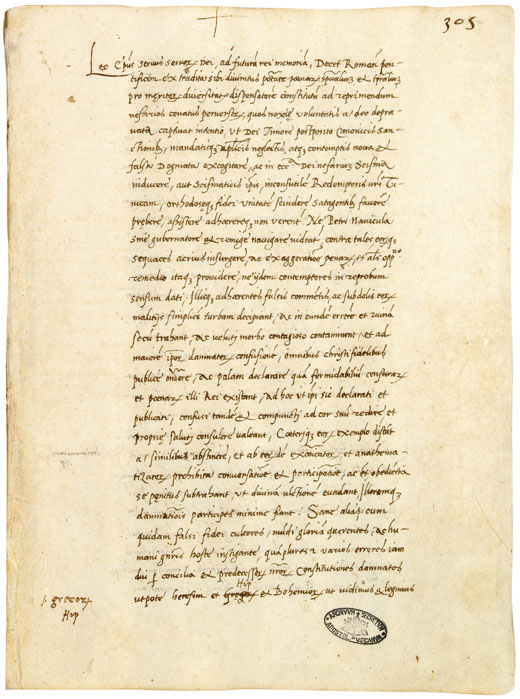 305
Leo Ep̄us servus servoꝝ Dei, ad futurā rei memoriā, Decet Romanū pon-
tificem ex tradita sibi divinitus ptāte penarꝝ spūaliuꝫ et tꝑaliuꝫ
pro meritorꝝ diversitate dispensatorē constitutū ad reprimendum
nefarios conatus perversorꝝ, quos noxię voluntatis adeo depra-
vata captivat intentio, ut Dei timore postposito canonicis san-
ctionibꝫ, mandatisqꝫ ap̄licis neglectis, atqꝫ contemptis nova et
falsa Dogmata excogitare, ac in ecc.ᵃ Dei nefariuꝫ Scisma
inducere, aut Scismaticis ip̄is, inconsutilē Redemptoris nr̄i Tu-
nicam, orthodoxęqꝫ fidei unitatē scindere satagentibꝫ favorē
prębere, assistere adhærereqꝫ non verent̄ Ne Petri Navicula
sine gubernatore et remige navigare videat̄, contra tales eorꝫqꝫ
sequaces acrius insurgere, ac exaggeratiōe penarꝝ, et als opp.ⁿᵒ
remedio itaqꝫ providere, ne ijdem contemptores in reprobum
sensum dati, Illisqꝫ adhærentes falsis commentis, ac subdolis eorꝝ
malitijs simplicē turbam decipiant, ac in eundē errorē et ruinā
secū trahant, ac veluti morbo contagioso contaminent, et ad
maiorē ip̄orꝝ damnatorꝝ confusionē, omnibus christifidelibus
publicè ondere, ac palam declarare quā formidabiliū censurarꝝ
et poenarꝝ illi Rei existant, ad hoc ut ip̄i sic declarati et
publicati, confusi tandē et compuncti ad cor suū redire et
proprię saluti consulere valeant, Cæteriqꝫ eorꝝ exemplo discāt
a similibus abstinere, et ab eorꝝ de excoīcatorꝝ, et anathema-
tizatorꝝ prohibita conversatiōe et participatiōe, ac et obedientia
se penitus subtrahant ut divinā ultionē evadant, Illorumqꝫ
damnatiōis participes minime fiant: Sane alias cum
quidam falsi fidei cultores, mūdi gloriā quęrentes, ac hu-
mani gn̄ris hoste instigante, quāplures et varios errores iam
du ꝑ concilia et predecessorꝝ nrōrꝝ Constitutiones damnatos
Hip
utpote heresim et gregorꝝ et Bohemiorꝝ, ut vidimus et legimus
/. grecorꝝ
Hip
ARCHIVVM SECRETVM APOSTOL. VATICANVM